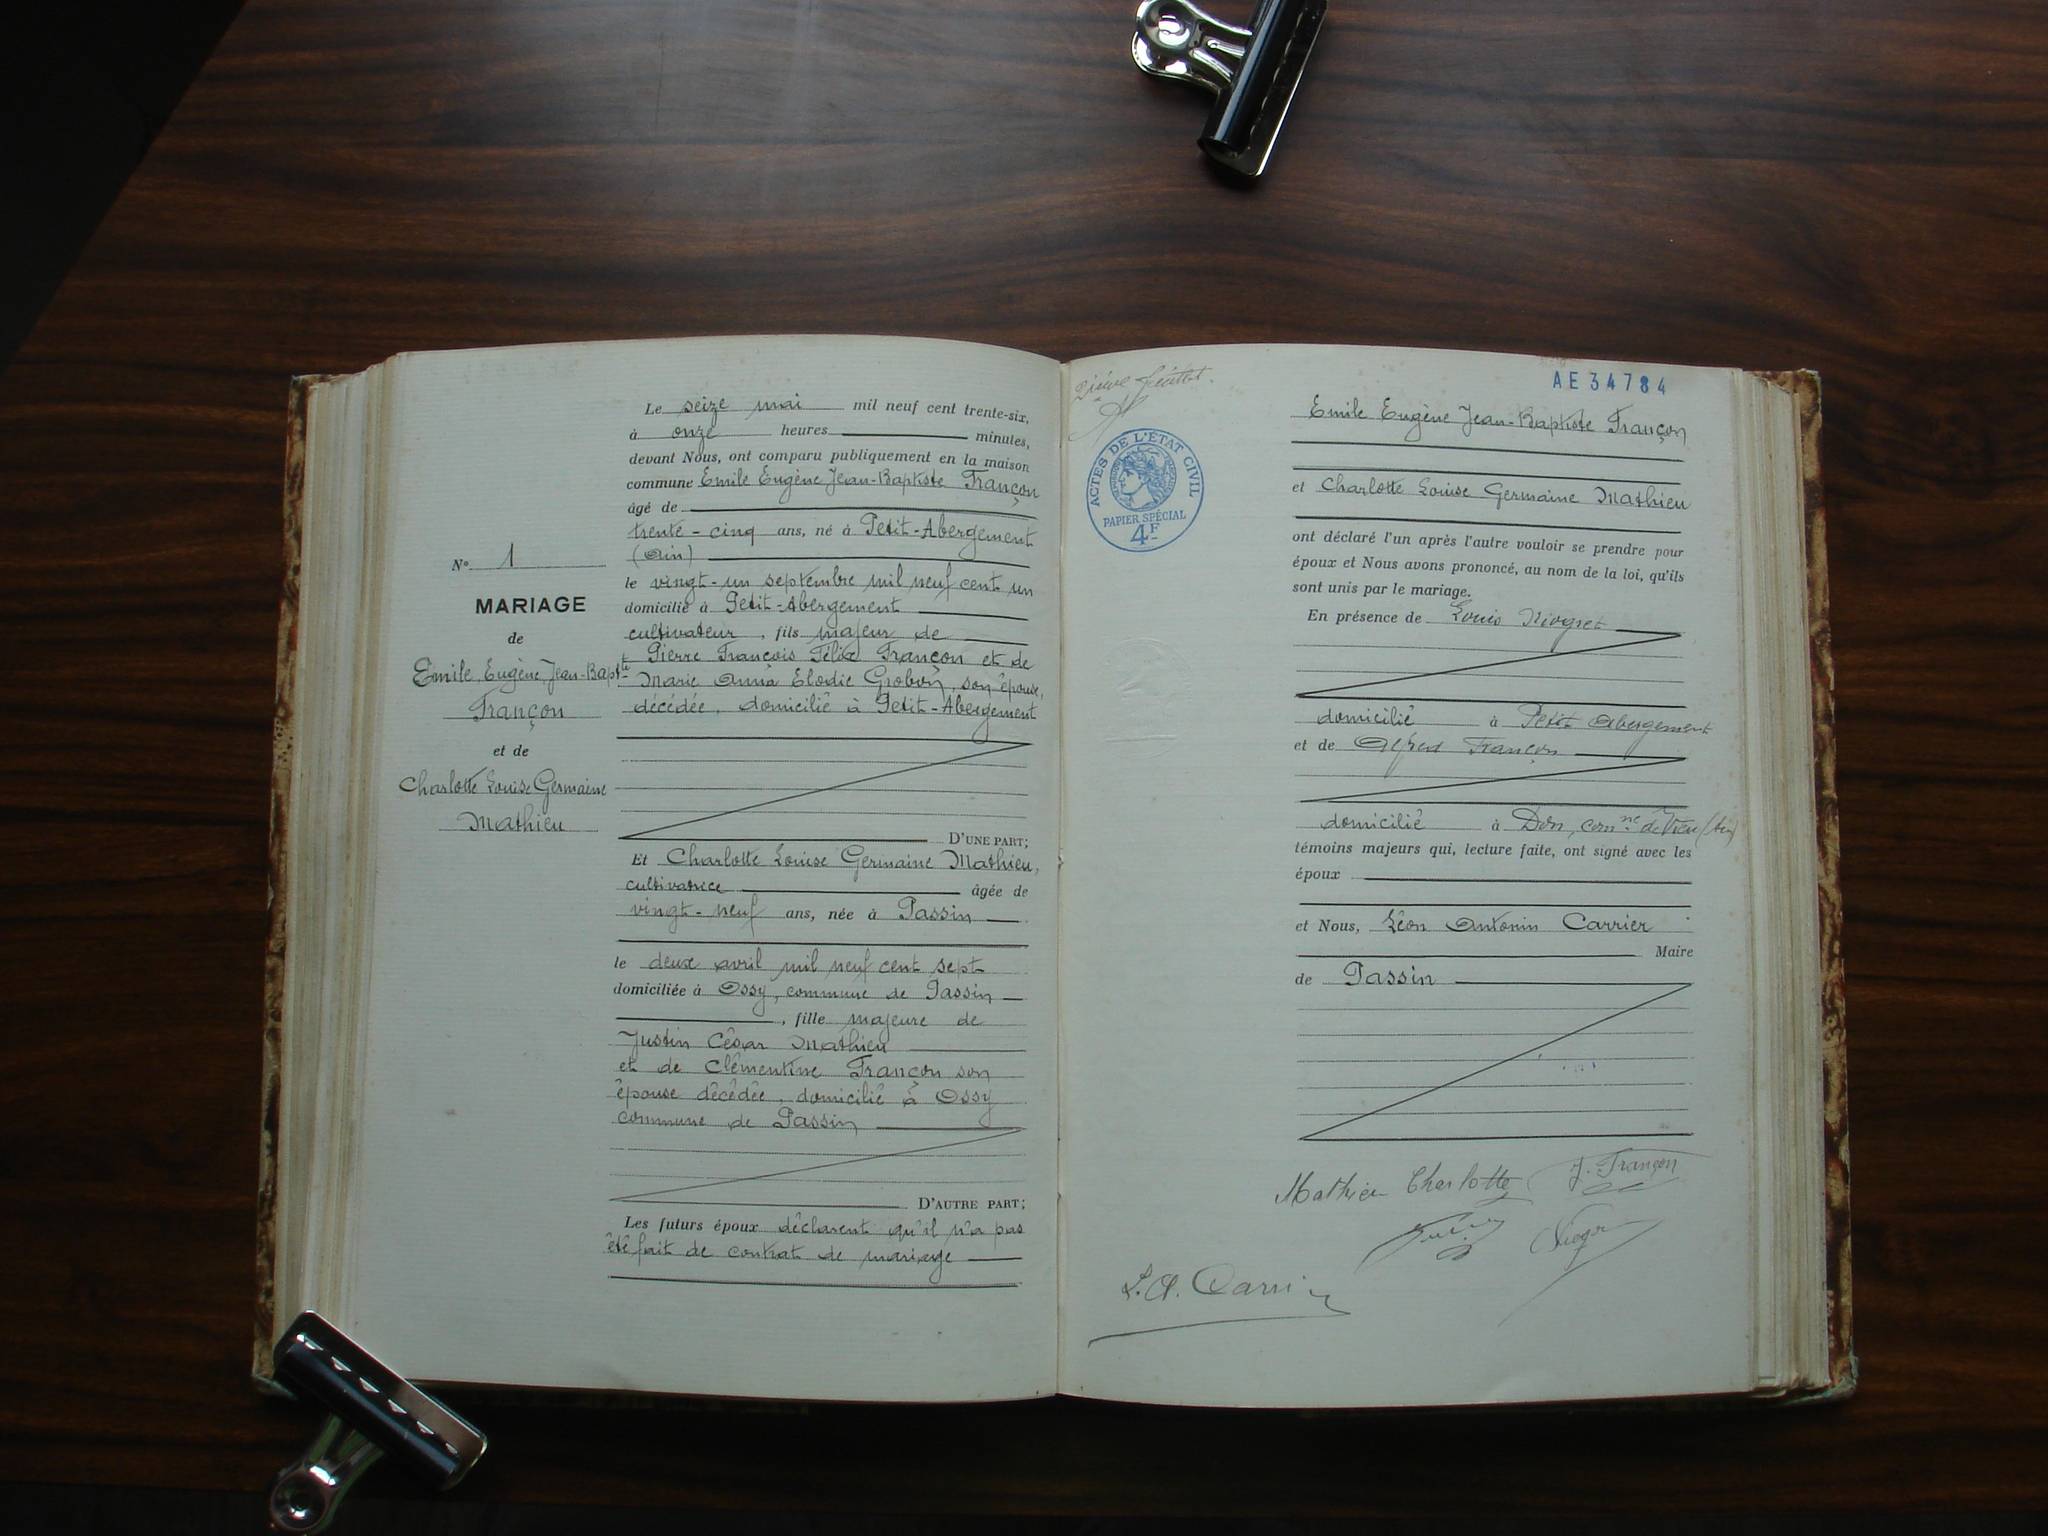 N° 1
MARIAGE
de
Emile, Eugène, Jean-Bapte
Françon
et de
Charlotte Louise Germaine
Mathieu
Le seize mai mil neuf cent trente-six,
à onze heures minutes,
devant Nous, ont comparu publiquement en la maison
commune Emile Eugène Jean-Baptiste Françon
âgé de
trente-cinq ans, né à Petit-Abergement
(Ain)
le vingt-un septembre mil neuf cent un
domicilié à Petit-Abergement
cultivateur, fils majeur de
Pierre François Félix Françon et de
Marie Anna Elodie Grobon, son épouse,
décédée, domicilié à Petit-Abergement
D'UNE PART;
Et Charlotte Louise Germaine Mathieu,
cultivatrice âgée de
vingt-neuf ans, née à Passin
le deux avril mil neuf cent sept
domiciliée à Ossy, commune de Passin
, fille majeure de
Justin César Mathieu
et de Clémentine Françon son
épouse décédée, domicilié à Ossy
commune de Passin
D'AUTRE PART;
Les futurs époux déclarent qu'il n'a pas
été fait de contrat de mariage
2ième feuillet.
ACTES DE L'ÉTAT CIVIL
PAPIER SPÉCIAL
4F
AE 34784
Emile Eugène Jean-Baptiste Françon
et Charlotte Louise Germaine Mathieu
ont déclaré l'un après l'autre vouloir se prendre pour
époux et Nous avons prononcé, au nom de la loi, qu'ils
sont unis par le mariage.
En présence de Louis Niogret
domicilié à Petit Abergement
et de Alfred Françon
domicilié à Don, comne de Vieu (Ain)
témoins majeurs qui, lecture faite, ont signé avec les
époux
et Nous, Léon Antonin Carrier
Maire
de Passin
Mathieu Charlotte J. Françon
Niogret
L. A. Carrier